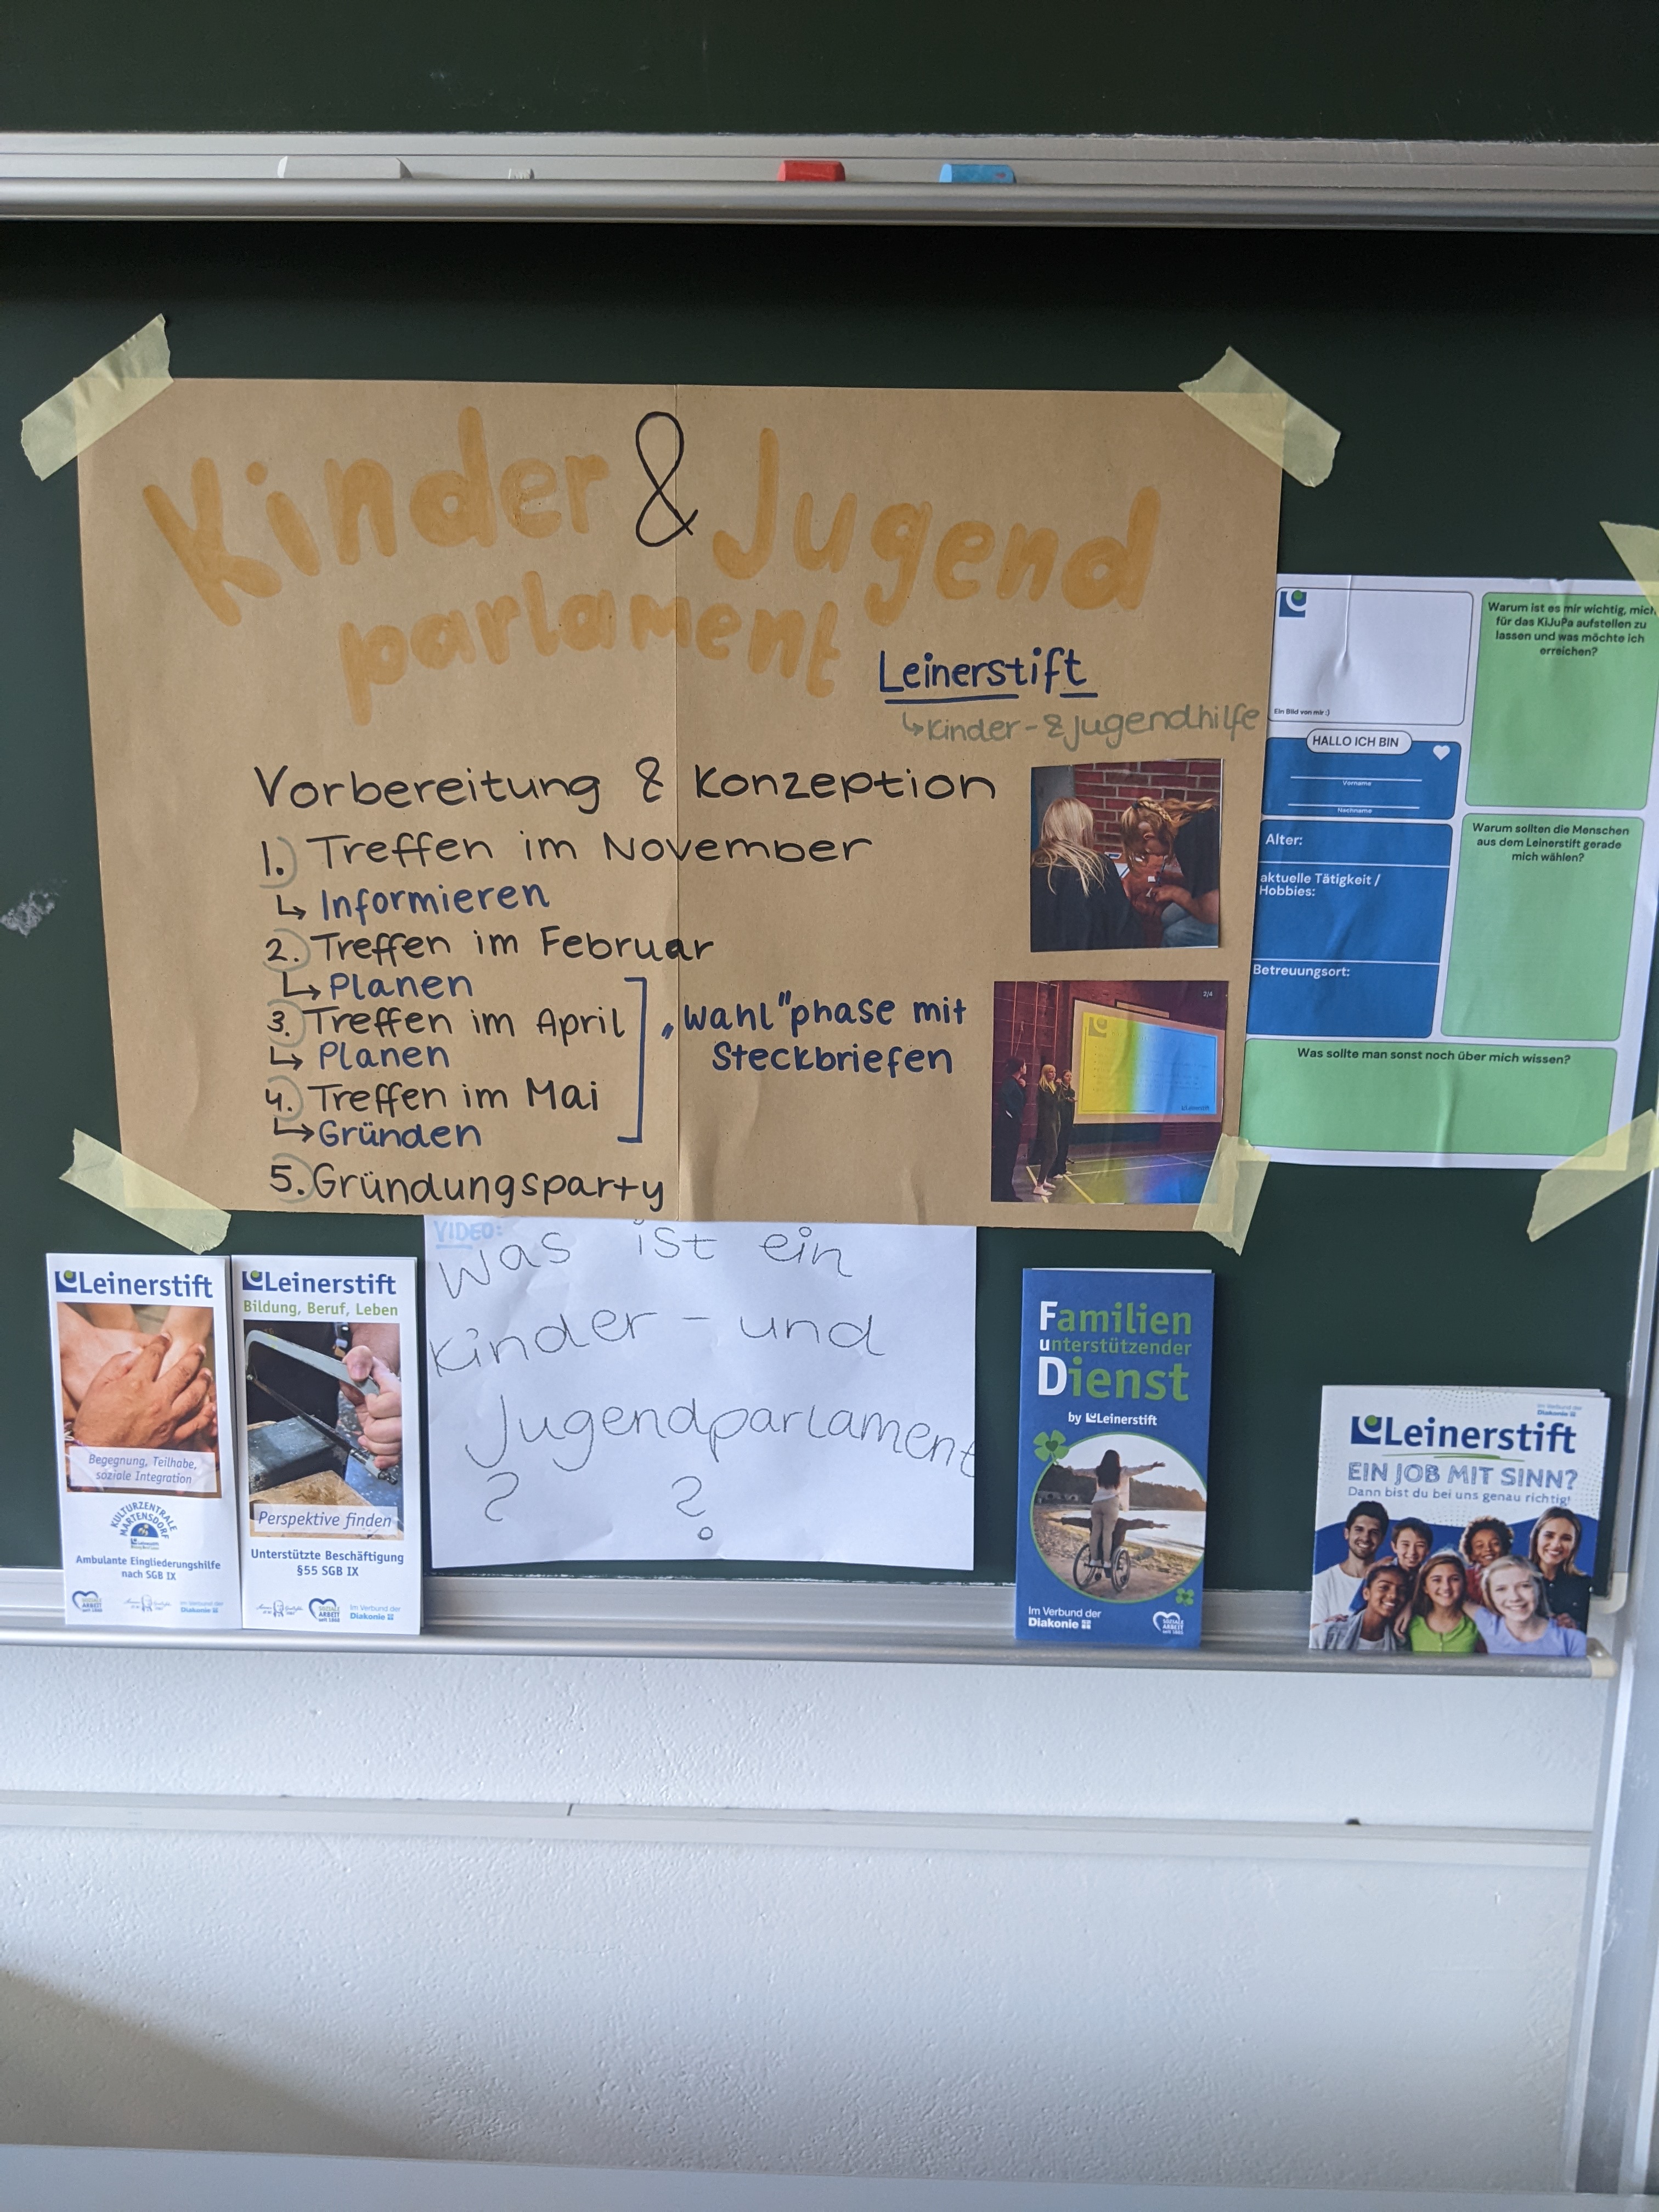 Kinder & Jugend
parlament
Leinerstift
↳ Kinder- & Jugendhilfe
Vorbereitung & Konzeption
1.) Treffen im November
↳ Informieren
2.) Treffen im Februar
↳ Planen
3.) Treffen im April
↳ Planen
4.) Treffen im Mai
↳ Gründen
5.) Gründungsparty
„Wahl"phase mit
Steckbriefen
2/4
Ein Bild von mir :)
HALLO ICH BIN
Vorname
Nachname
Alter:
aktuelle Tätigkeit /
Hobbies:
Betreuungsort:
Warum ist es mir wichtig, mich
für das KiJuPa aufstellen zu
lassen und was möchte ich
erreichen?
Warum sollten die Menschen
aus dem Leinerstift gerade
mich wählen?
Was sollte man sonst noch über mich wissen?
VIDEO:
Was ist ein
Kinder- und
Jugendparlament
? ?
Leinerstift
Begegnung, Teilhabe,
soziale Integration
KULTURZENTRALE
MARTENSDORF
Ambulante Eingliederungshilfe
nach SGB IX
SOZIALE
ARBEIT
Im Verbund der
Diakonie
Leinerstift
Bildung, Beruf, Leben
Perspektive finden
Unterstützte Beschäftigung
§55 SGB IX
SOZIALE
ARBEIT
Im Verbund der
Diakonie
Familien
unterstützender
Dienst
by Leinerstift
Im Verbund der
Diakonie
SOZIALE
ARBEIT
Im Verbund der
Diakonie
Leinerstift
EIN JOB MIT SINN?
Dann bist du bei uns genau richtig!